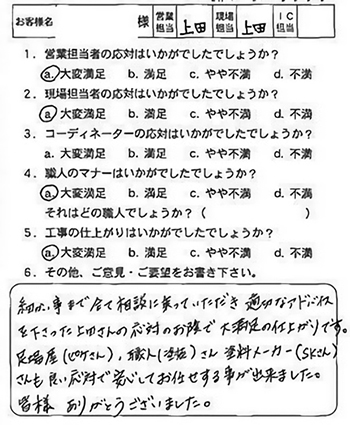 お客様名 様 営業担当 上田 現場担当 上田 IC担当
1．営業担当者の応対はいかがでしたでしょうか？
a. 大変満足 b. 満足 c. やや不満 d. 不満
2．現場担当者の応対はいかがでしたでしょうか？
a. 大変満足 b. 満足 c. やや不満 d. 不満
3．コーディネーターの応対はいかがでしたでしょうか？
a. 大変満足 b. 満足 c. やや不満 d. 不満
4．職人のマナーはいかがでしたでしょうか？
a. 大変満足 b. 満足 c. やや不満 d. 不満
それはどの職人でしょうか？（ ）
5．工事の仕上がりはいかがでしたでしょうか？
a. 大変満足 b. 満足 c. やや不満 d. 不満
6．その他、ご意見・ご要望をお書き下さい。
細かい事まで全て相談に乗っていただき 適切なアドバイス
を下さった上田さんの応対のお陰で 大満足の仕上がりです。
足場屋(ピケさん)，職人(塗装)さん 塗料メーカー(SKさん)
さんも良い応対で安心してお任せする事が出来ました。
皆様 ありがとうございました。